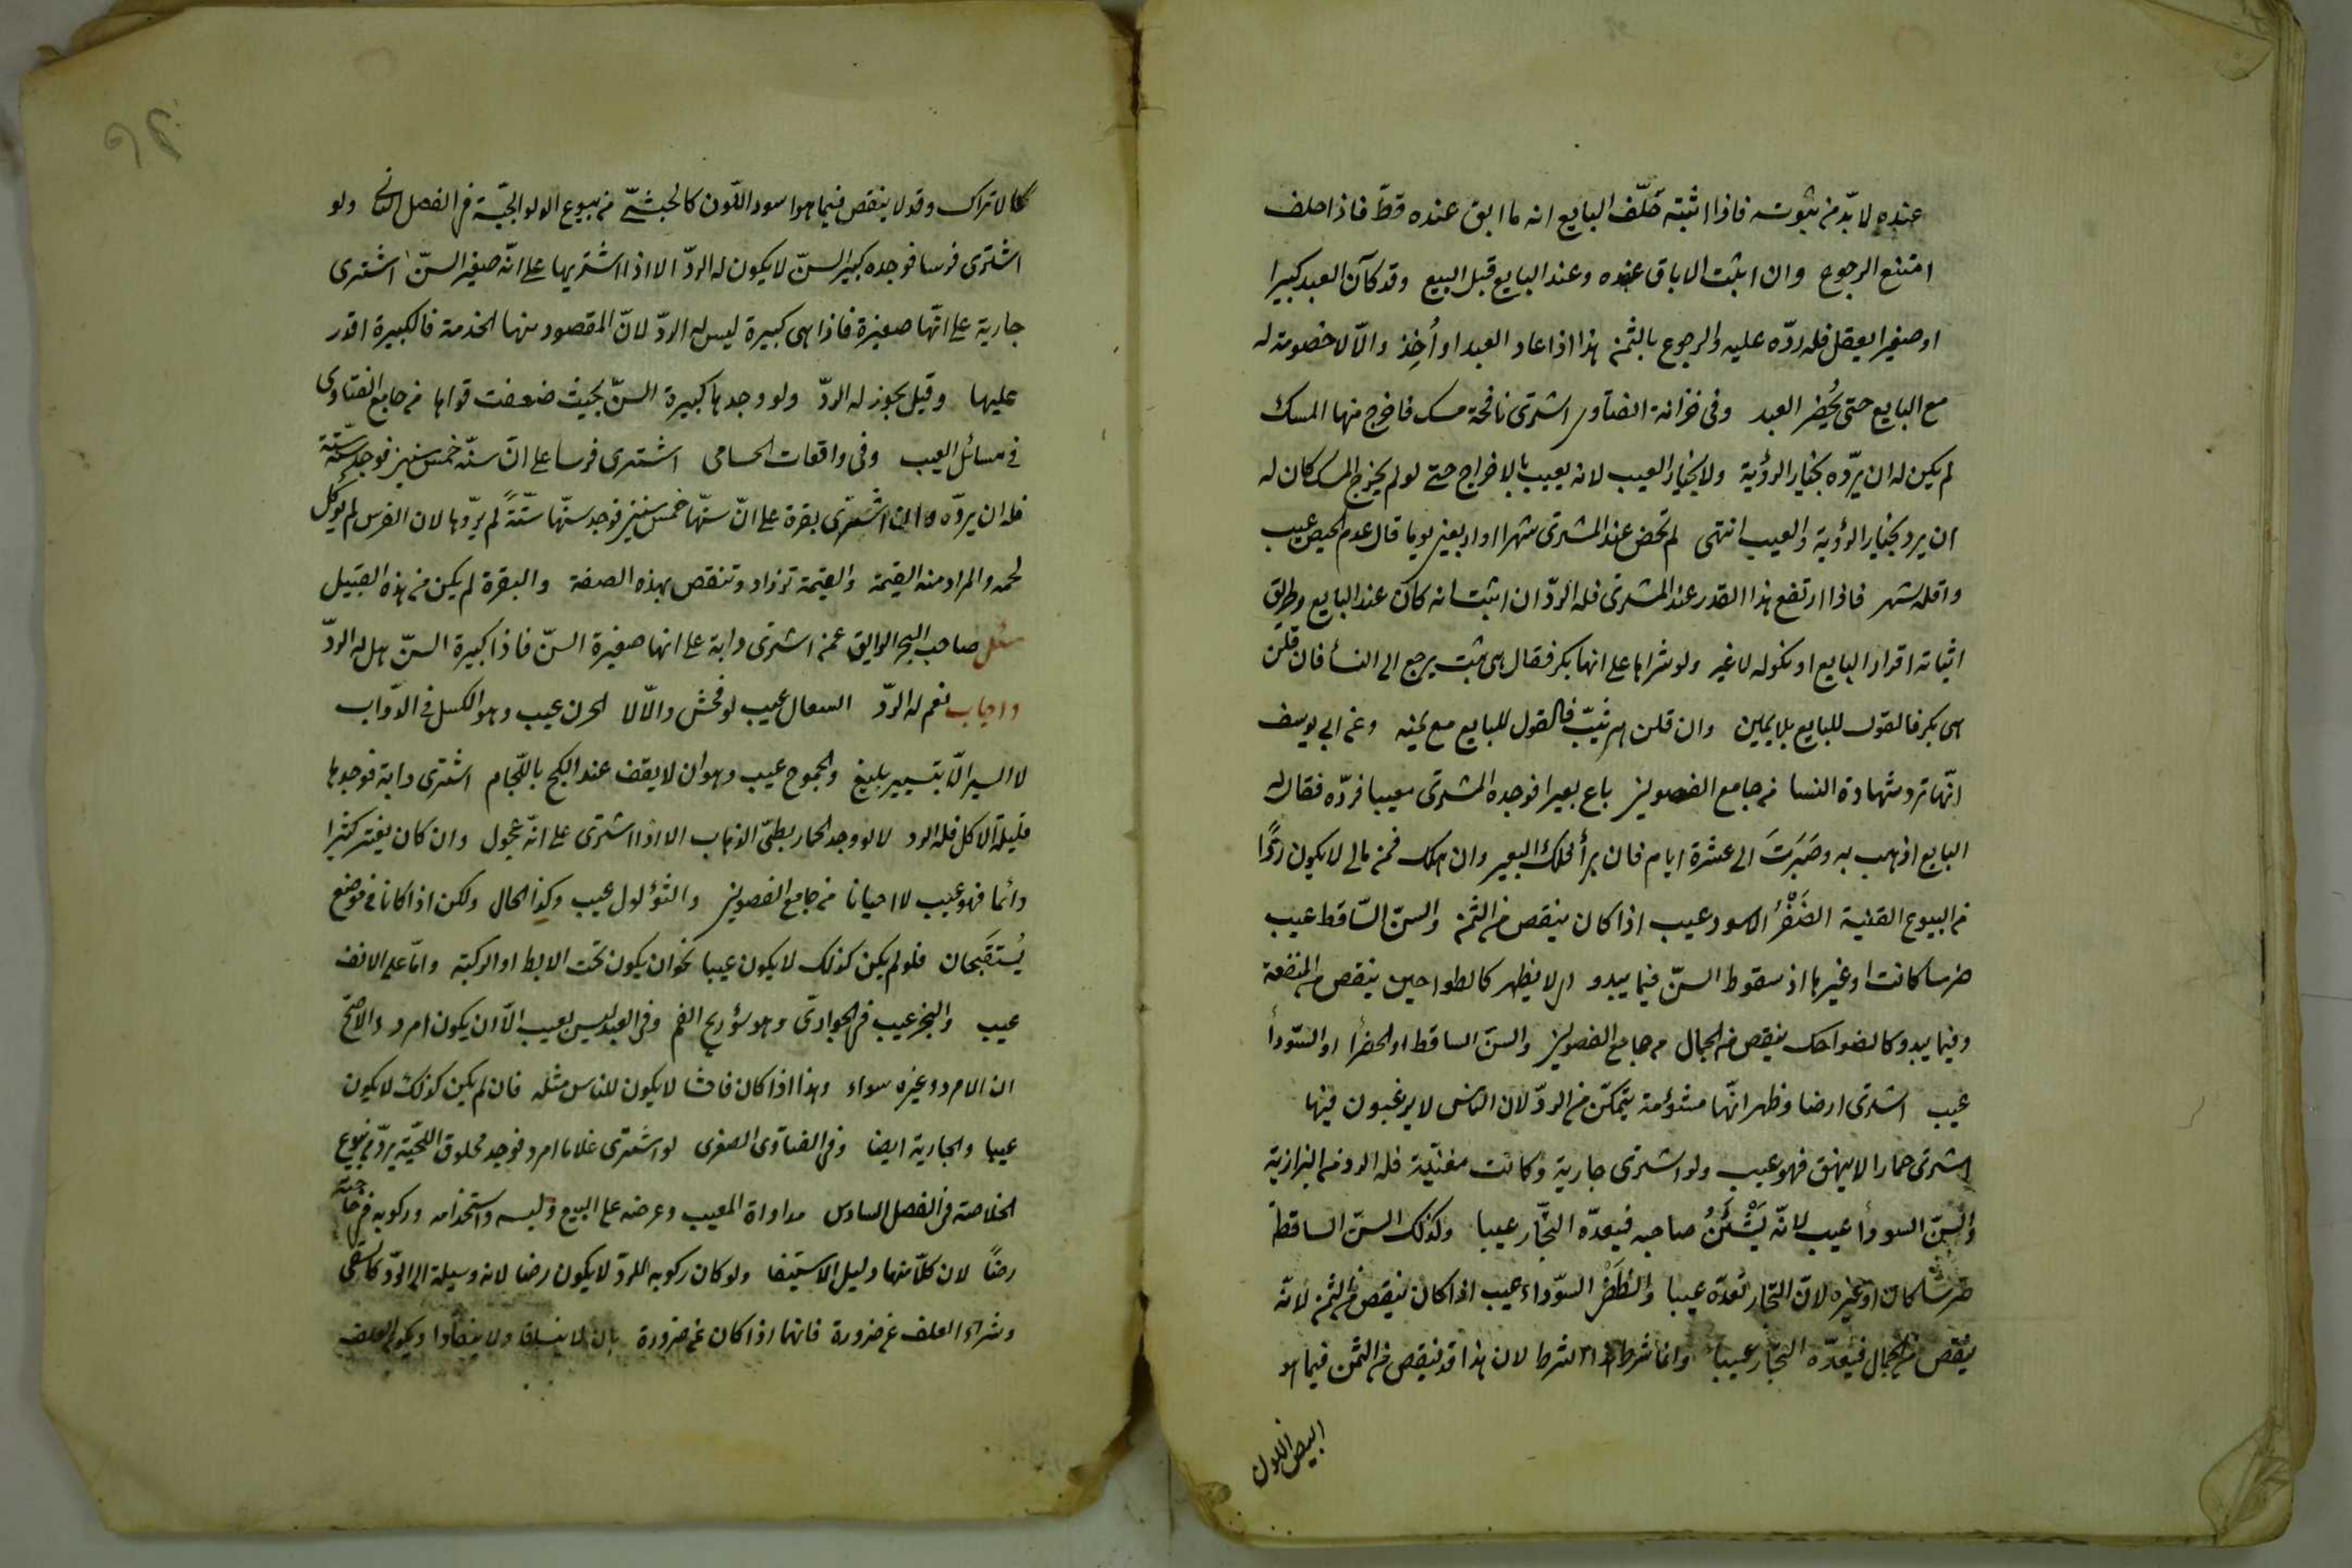 عنده لا بدّ من ثبوته فاذا اثبته حَلّف البايع انه ما ابق عنده قطّ فاذا حلف
امتنع الرجوع وان اثبت الاباق عنده وعند البايع قبل البيع وقد كان العبد كبيرا
او صغير العقل فله ردّه عليه والرجوع بالثمن هذا اذا عاد العبد او أُخِذ والّا لا خصومة له
مع البايع حتى يُحضر العبد وفى خزانة الفتاوى اشترى نافحة مسك فاخرج منها المسك
لم يكن له ان يردّه بخيار الرؤية ولا بخيار العيب لانه يعيب بالاخراج حتى لو لم يخرج المسك كان له
ان يرد بخيار الرؤية والعيب انتهى لم تحض عند المشترى شهرا او اربعين يوما قال عدم الحيض عيب
واقله شهر فاذا ارتفع هذا القدر عند المشترى فله الردّ ان اثبت انه كان عند البايع وطريق
اثباته اقرار البايع او نكوله لا غير ولو شراها على انها بكر فقال هى ثيب يرجع الى النسأ فان قلن
هى بكر فالقول للبايع بلا يمين وان قلن هى ثيّب فالقول للبايع مع يمينه وعن ابى يوسف
انّها ترد بشهادة النسا من جامع الفصولين باع بعيرا فوجده المشترى معيبا فردّه فقال له
البايع اذهب به وصَبَرتَ الى عشرة ايام فان برأ فلك البعير وان هلك فمن مالى لا يكون ردًّا
من البيوع القنية الظفر الاسود عيب اذا كان ينقص من الثمن والسنّ السّاقط عيب
ضرسا كانت او غيرها اذ سقوط السنّ فيما يبدو او لا يظهر كالطواحين ينقص من المنفعة
وفيما يبدو كالضواحك ينقص من الجمال من جامع الفصولين والسنّ الساقط او الخضرأ او السّودأ
عيب اشترى ارضا وظهر انّها مشؤمة يتمكّن من الردّ لان الناس لا يرغبون فيها
اشترى حمارا لا ينهق فهو عيب ولو اشترى جارية وكانت مغنّية فله الرد من البزازية
والسنّ السودأ عيب لانّه يَشِينُ صاحبه فيعدّه التجّار عيبا وكذلك السنّ الساقط
ضرسًا كان او غيره لانّ التجار تعدّه عيبا والظفر السّوداء عيب اذا كان ينقص من الثمن لانّه
ينقص من الجمال فيعدّه التجّار عيبا وانما شرط هذا الشرط لان هذا قد ينقص من الثمن فيما هو
ابيض اللون
كالاتراك وقد لا ينقص فيما هو اسود اللّون كالحبشىّ من بيوع الولوالجيّة من الفصل الثانى ولو
اشترى فرسا فوجده كبير السنّ لا يكون له الردّ الا اذا اشتريها على انّه صغير السنّ اشترى
جارية على انّها صغيرة فاذا هى كبيرة ليس له الردّ لانّ المقصود منها الخدمة فالكبيرة اقدر
عليها وقيل يجوز له الردّ ولو وجدها كبيرة السنّ بحيث ضعفت قواها من جامع الفتاوى
فى مسائل العيب وفى واقعات الحسامى اشترى فرسا على انّ سنّه خمس سنين فوجد سنّه ستّة
فله ان يردّه وان اشترى بقرة على انّ سنّها خمس سنين فوجد سنّها ستّةً لم يردّها لان الفرس لم يؤكل
لحمه والمراد منه القيمة والقيمة تزداد وتنقص بهذه الصفة والبقرة لم يكن من هذه القبيل
سئل صاحب البحر الرايق عمن اشترى دابة على انها صغيرة السنّ فاذا كبيرة السنّ هل له الردّ
واجاب نعم له الردّ السعال عيب لو فحش والّا لا الحرن عيب وهو الكسل فى الدوّاب
لا السير الّا بتسيير بليغ والجموح عيب وهو ان لا يقف عند الكبح باللّجام اشترى دابة فوجدها
قليلة الاكل فله الرد لا لو وجد الحمار بطئ الذهاب الا اذا اشترى على انّه عجول وان كان يعثر كثيرا
دائما فهو عيب لا احيانا من جامع الفصولين والثؤلول عيب وكذا الخال ولكن اذا كانا فى موضع
يُستقبَحان فلو لم يكن كذلك لا يكون عيبا نحو ان يكون تحت الابط او الركبة وامّا على الانف
عيب والبخر عيب فى الجوارى وهو سؤ ريح الفم وفى العبد ليس بعيب الّا ان يكون امرد والاصحّ
ان الامرد وغيره سواء وهذا اذا كان فاحشا لا يكون للناس مثله فان لم يكن كذلك لا يكون
عيبا والجارية ايضا وفى الفتاوى الصغرى لو اشترى غلاما امرد فوجد محلوق اللحيّة يردّ من بيوع
الخلاصة فى الفصل السادس مداواة المعيب وعرضه على البيع ولبسه واستخدامه وركوبه فى حاجته
رضًا لان كلّا منها دليل الاستبقا ولو كان ركوبه للردّ لا يكون رضا لانه وسيلة الى الردّ كالسقى
وشراء العلف عن ضرورة فانهما اذا كان عن ضرورة بان لا ينساق ولا ينقاد او يكون العلف